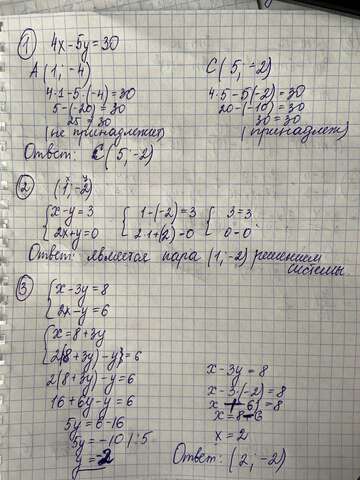 ① 4x-5y=30
A(1;-4)
4·1-5·(-4)=30
5-(-20)=30
25=30
(не принадлежит)
C(5;-2)
4·5-5(-2)=30
20-(-10)=30
30=30
(принадлеж)
Ответ: C(5;-2)
② (1;-2)
{x-y=3
{2x+y=0
{1-(-2)=3
{2·1+(2)=0
{3=3
{0-0
Ответ: является пара (1;-2) решением
системы
③ {x-3y=8
{2x-y=6
{x=8+3y
{2(8+3y)-y}=6
2(8+3y)-y=6
16+6y-y=6
5y=6-16
5y=-10 |:5
y=-2
x-3y=8
x-3·(-2)=8
x+6=8
x=8-6
x=2
Ответ: (2;-2)